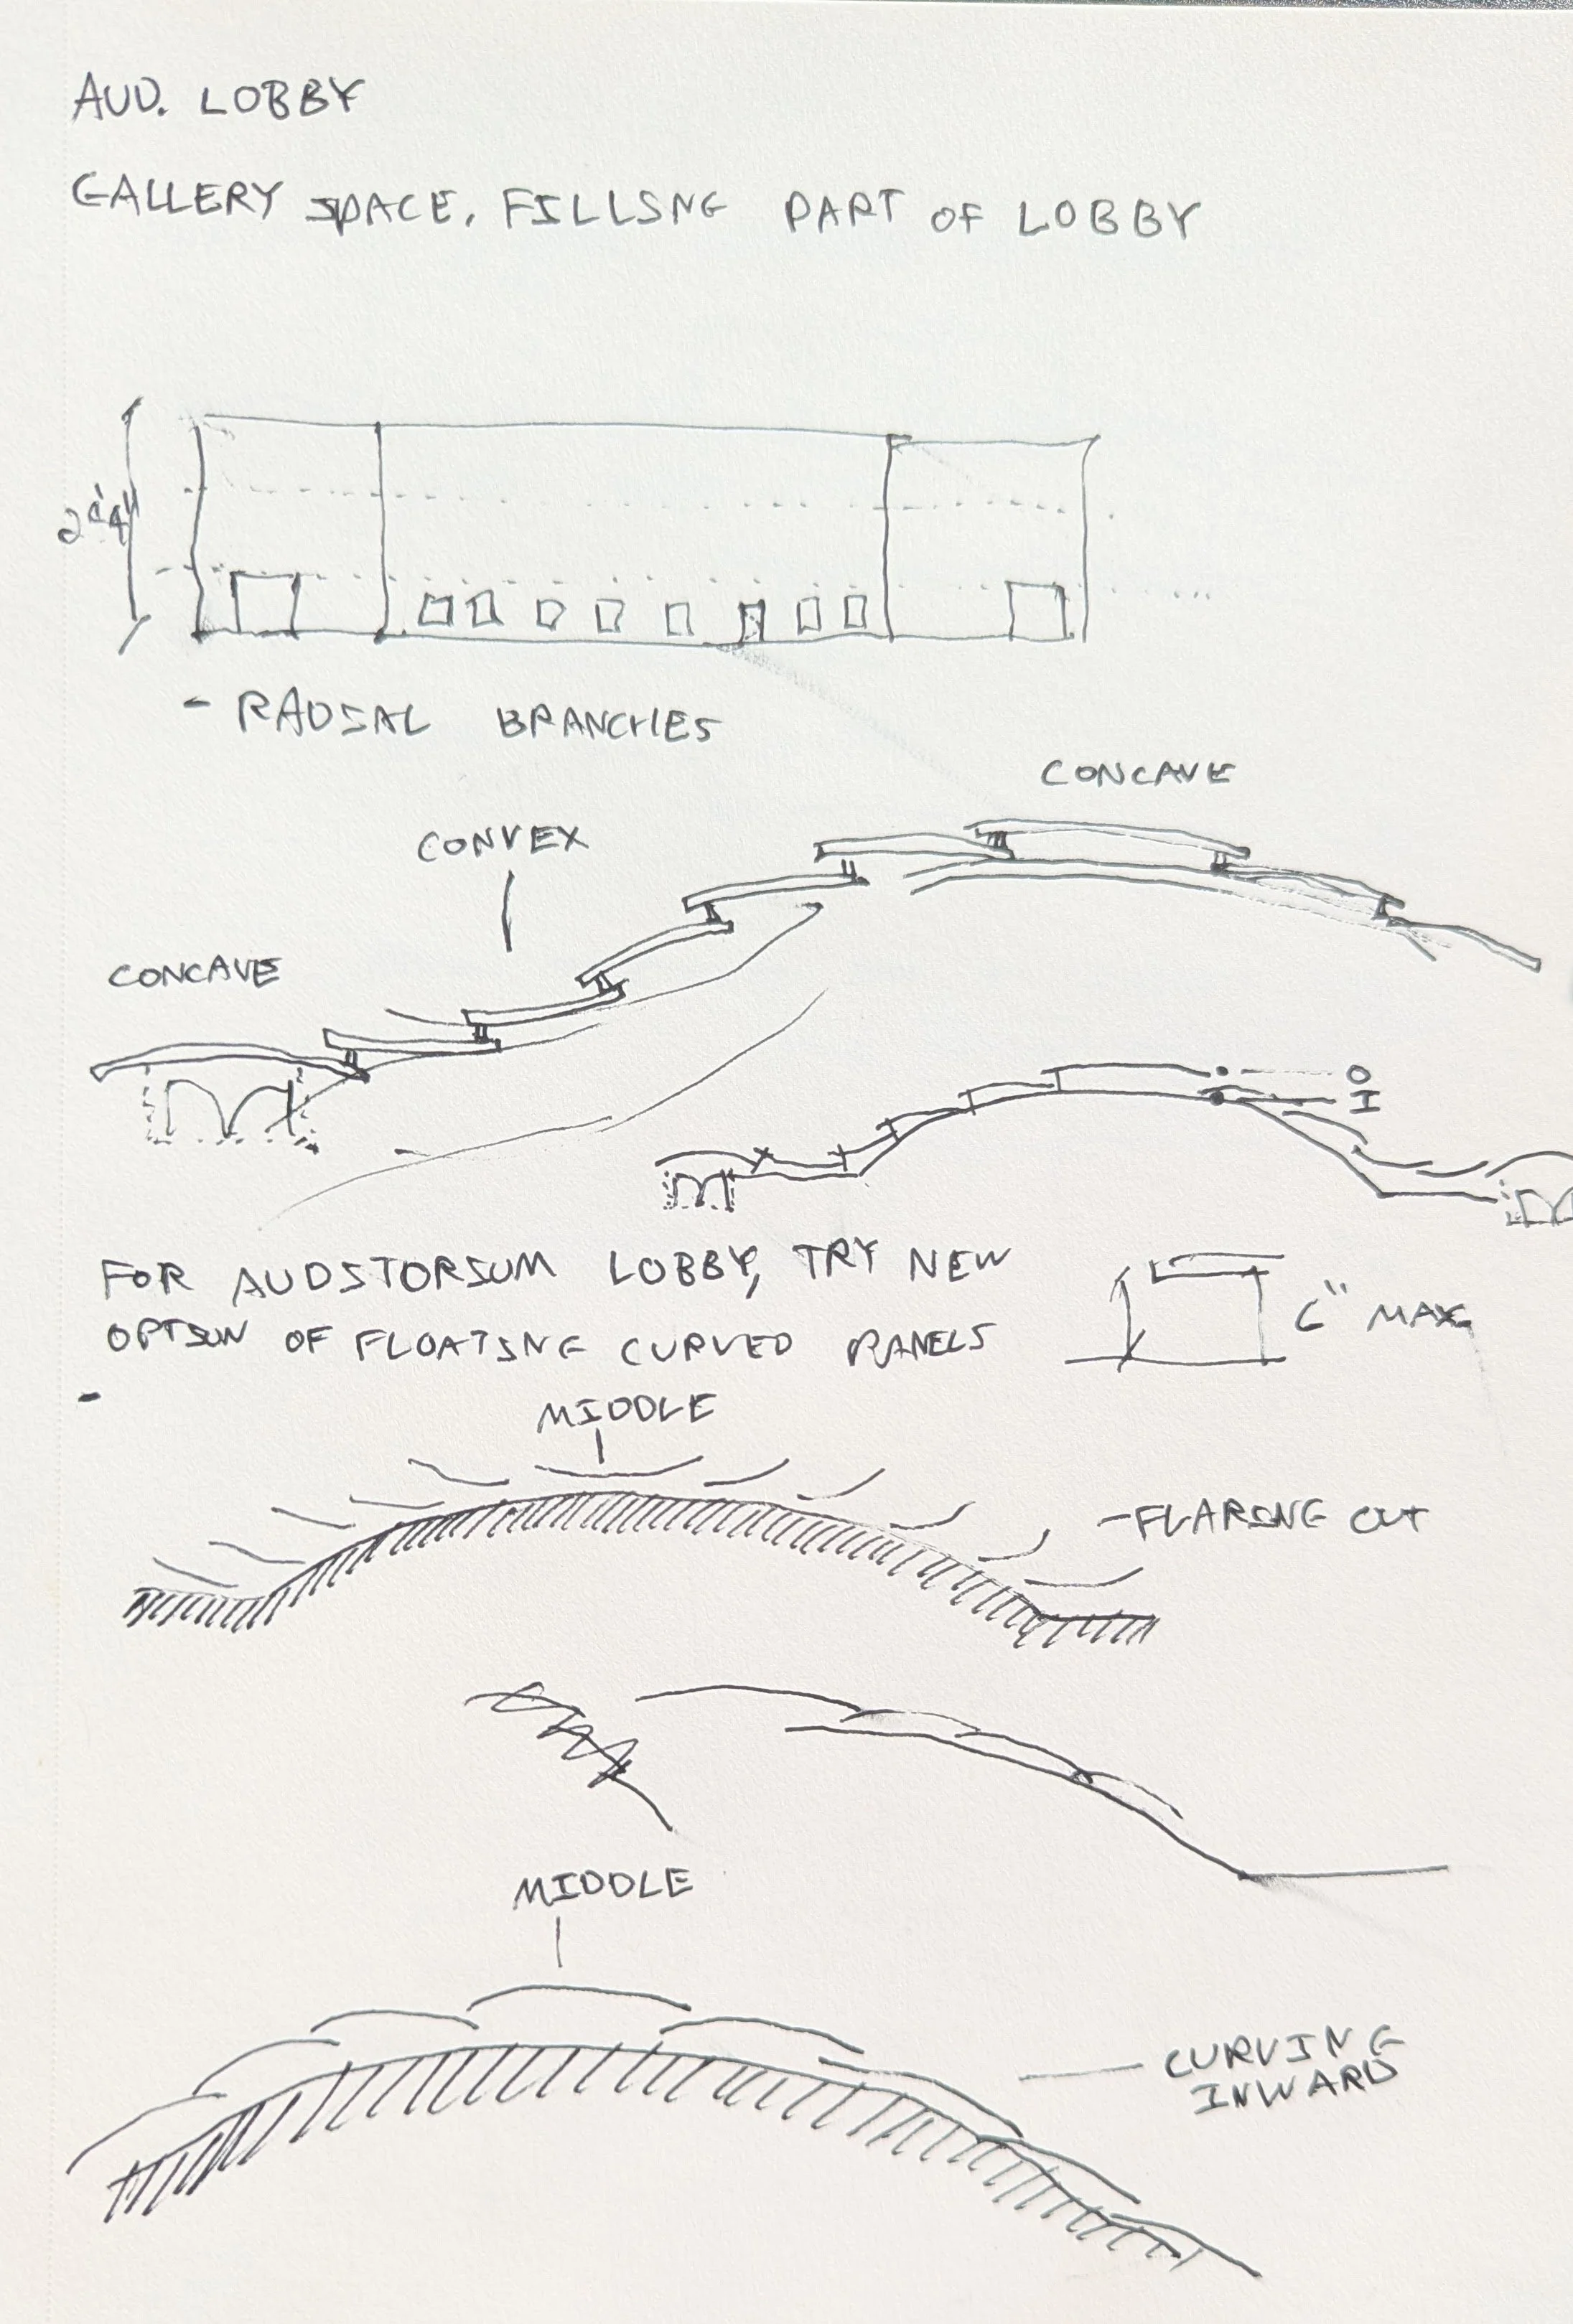 AUD. LOBBY
GALLERY SPACE, FILLING PART OF LOBBY
- RADIAL BRANCHES
CONCAVE
CONVEX
CONCAVE
O
I
FOR AUDITORIUM LOBBY, TRY NEW
OPTION OF FLOATING CURVED PANELS
6" MAX
-
MIDDLE
- FLARING OUT
MIDDLE
CURVING
INWARD